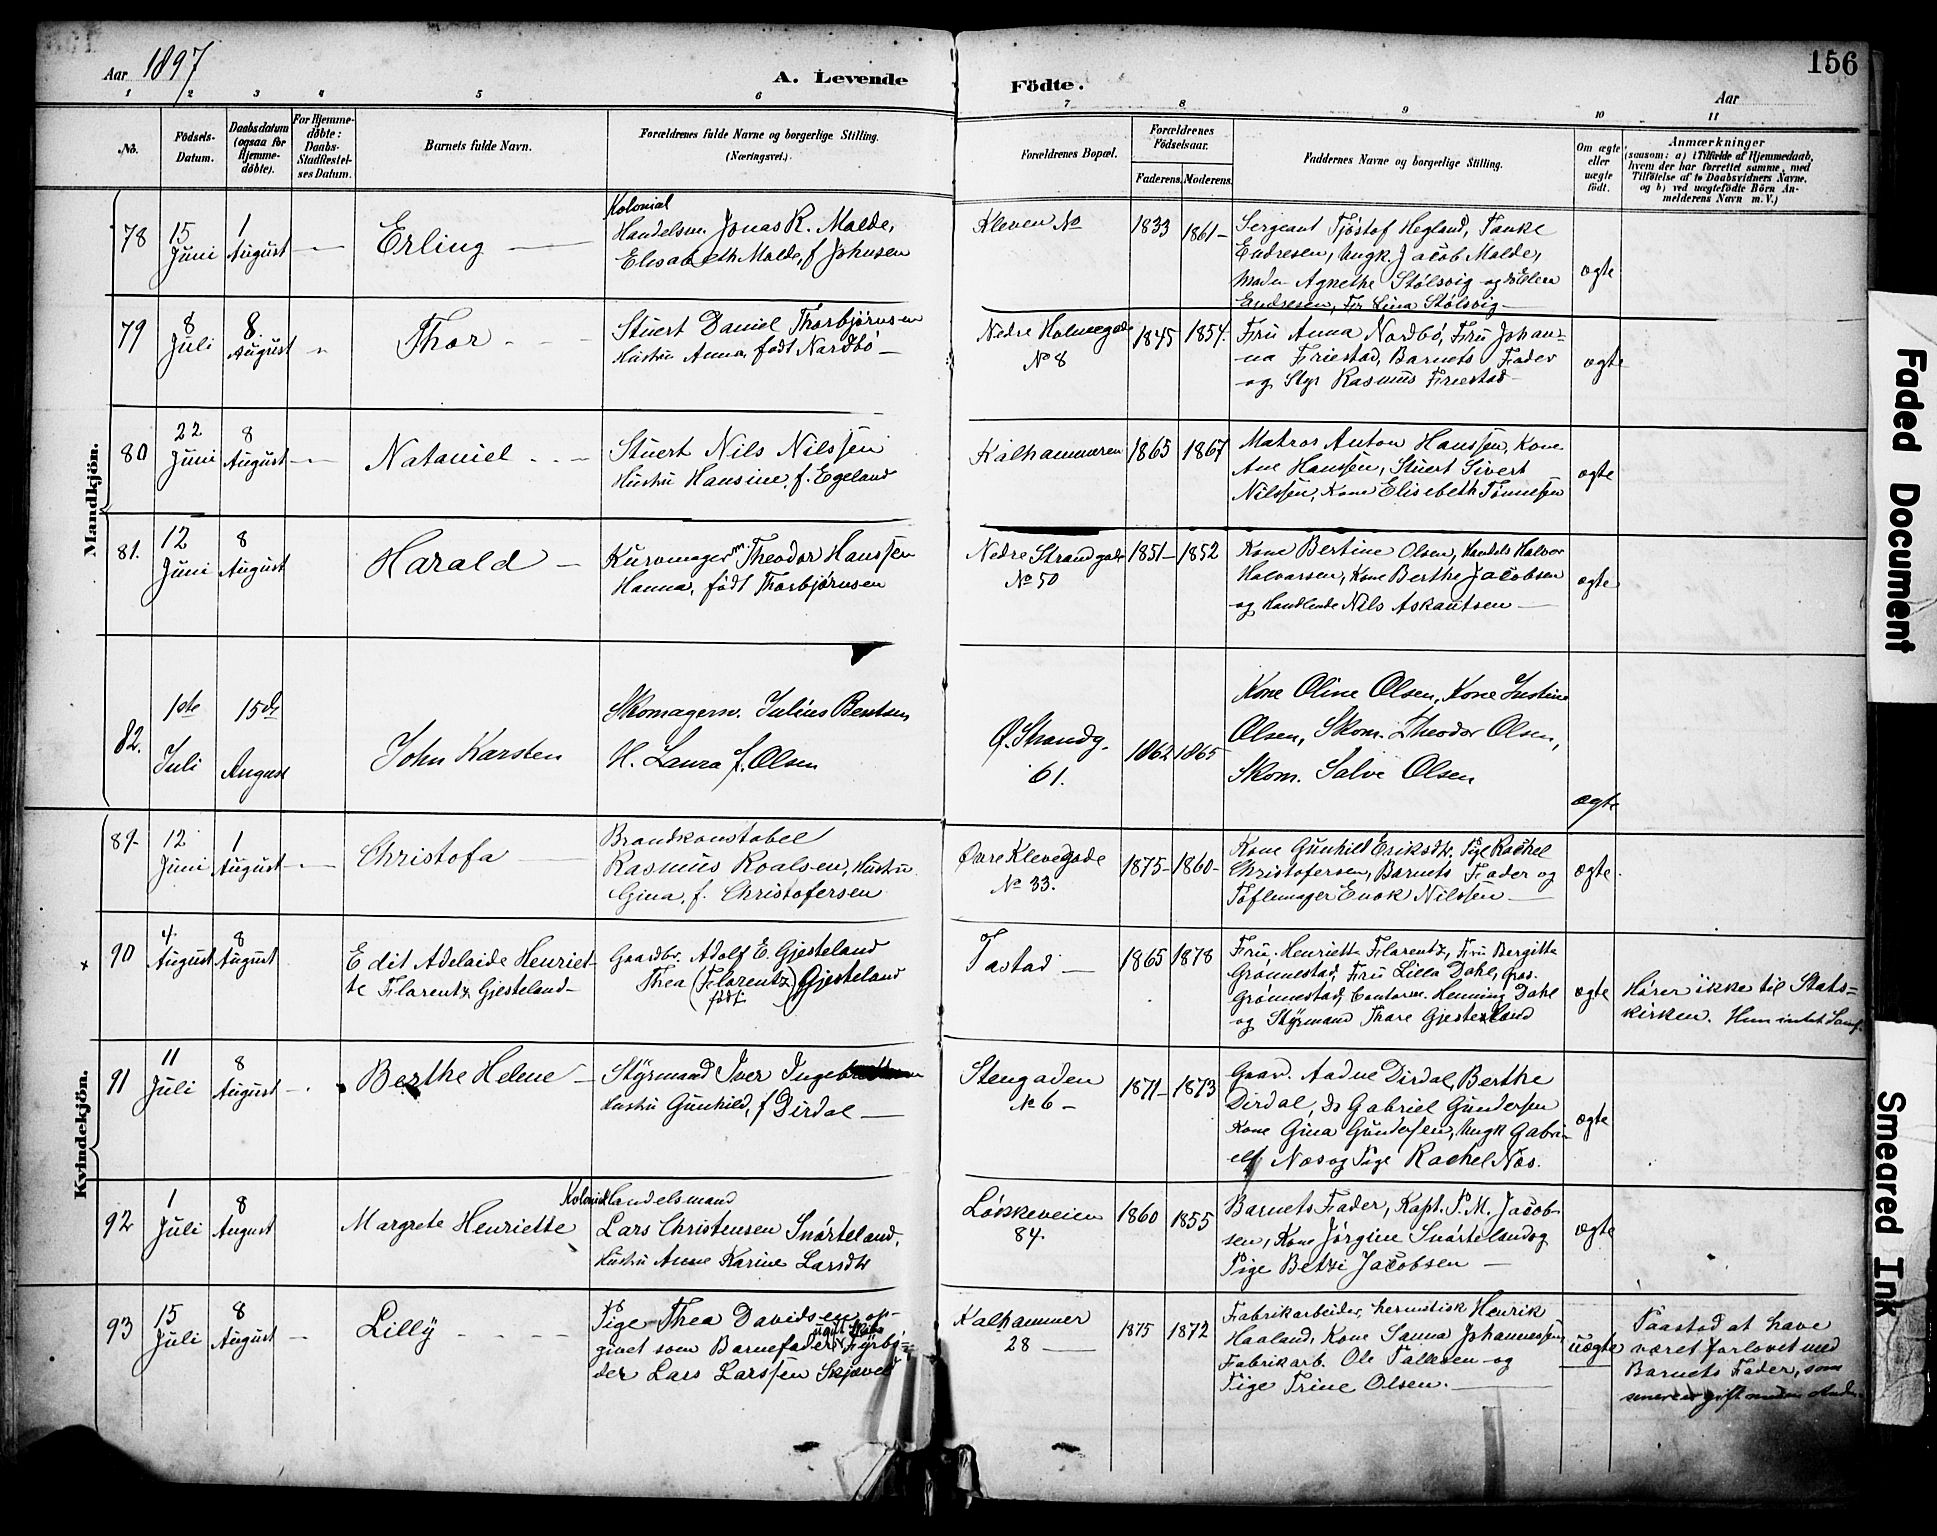 Aar 1897
A. Levende
Födte.
Aar
156
1 2 3 4 5 6 7 8 9 10 11
No.
Födsels-
Datum.
Daabsdatum
(ogsaa for
Hjemme-
døbte).
For Hjemme-
døbte:
Daabs-
Stadfæstel-
ses Datum.
Barnets fulde Navn.
Forældrenes fulde Navne og borgerlige Stilling.
(Næringsvei.)
Forældrenes Bopæl.
Forældrenes
Födselsaar.
Faderens. Moderens.
Faddernes Navne og borgerlige Stilling.
Om ægte
eller
uægte
født.
Anmærkninger
(saasom: a) i Tilfælde af Hjemmedaab,
hvem der har forrettet samme, med
Tilføielse af to Daabsvidners Navne,
og b) ved uægtefødte Börn An-
melderens Navn m. V.)
Mandkjön.
78
15
Juni
1
August
Erling
Kolonial
Handelsm. Jonas R. Malde,
Elisabeth Malde, f Johnsen
Kleven No
1833 1861
Sergeant Tjøstof Hegland, Tanke
Endresen, Ungk. Jacob Malde,
Madm Agnethe Stølsvig og do Elen
Endresen, Frk Lina Stølsvig
ægte
79
8
Juli
8.
August
Thor
Stuert Daniel Thorbjørnsen
Hustru Anna, født Nordbø
Nedre Holmegade
No 8
1845 1854.
Fru Anna Nordbö, Fru Johan-
na Friestad, Barnets Fader
og Styr Rasmus Friestad
ægte
80
22
Juni
8
August
Nataniel
Stuert Nils Nilssen
Hustru Hansine, f. Egeland
Kalhammeren
1865 1867
Matros Anton Hanssen, Kone
Ane Hanssen, Stuert Sivert
Nilssen, Kone Elisebeth Tønnesen
ægte
81.
12
Juni
8
August
Harald
Kurvmagerm. Theodor Hanssen
Hanna, født Thorbjørnsen
Nedre Strandgade
No 50
1851 1852
Kone Bertine Olsen, Handels Halvor
Halvorsen, Kone Berthe Jacobsen
og Handlende Nils Askautsen
ægte
82.
1ste
Juli
15de
August
John Karsten
Skomagersv. Julius Bentsen
H. Laura f. Olsen
Ø. Strandg.
61.
1862 1865
Kone Oline Olsen, Kone Justine
Olsen, Skom. Theodor Olsen,
Skom. Salve Olsen
ægte
Kvindekjön.
89
12
Juni
1
August
Christofa
Brandkonstabel
Rasmus Roalsen, Hustru
Gina, f. Christofersen
Øvre Klevegade
No 33.
1875 1860
Kone Gunhild Eriksdtr, Pige Rachel
Christofersen, Barnets Fader og
Tøflemager Enok Nilssen
ægte.
x
90
4.
August
8
August
Edit Adelaide Henriet-
te Florentz Gjesteland
Gaardbr. Adolf E. Gjesteland
Thea (Florentz) Gjesteland
født
Tastad
1865 1878
Fru Henriette Florentz, Fru Bergitte
Grønnestad, Fru Lilla Dahl,
Grønnestad, Henning Dahl
og Styrmand Thore Gjesteland
ægte
Hører ikke til Stats-
kirken. Hun intet
91
11
Juli
8
August
Berthe Helene
Styrmand Iver
Hustru Gunhild, f Dirdal
Stengaden
No 6
1871 1873
Gaard. Aadne Dirdal, Berthe
Dirdal, do Gabriel Gundersen
Kone Gina Gundersen, Ungk Gabri-
el Næs og Pige Rachel Næs.
ægte
92
1
Juli
8
August
Margrete Henriette
Kolonialhandelsmand
Lars Christensen Snørteland,
Hustru Anne Karine Larsdtr
Løkkeveien
84.
1860 1855
Barnets Fader, Kapt. P. M. Jacob-
sen, Kone Jørgine Snørteland og
Pige Betzi Jacobsen
ægte
93
15
Juli
8
August
Lilly
Pige Thea Davidsen op-
givet som Barnefader ugift Fyrbø-
der Lars Larssen Skjæveland
Kalhammer
28
1875 1872
Fabrikarbeider, hermetisk Henrik
Haaland, Kone Sanna Johannessen
Fabrikarb. Ole Tallesen og
Pige Trine Olsen.
uægte
Paastod at have
været forlovet med
Barnets Fader, som
senere er gift med en
Faded Document
Smeared Ink